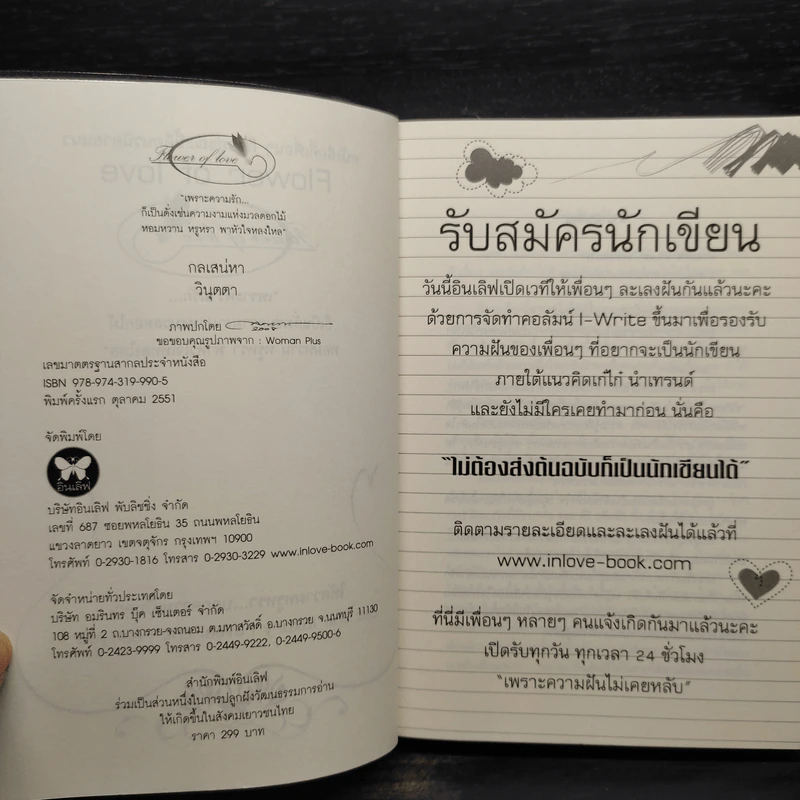 Flower of love
"เพราะความรัก...
ก็เป็นดั่งเช่นความงามแห่งมวลดอกไม้
หอมหวาน หรูหรา พาหัวใจหลงใหล"
กลเสน่หา
วินุตตา
ภาพปกโดย
ขอขอบคุณรูปภาพจาก : Woman Plus
เลขมาตตรฐานสากลประจำหนังสือ
ISBN 978-974-319-990-5
พิมพ์ครั้งแรก ตุลาคม 2551
จัดพิมพ์โดย
อินเลิฟ
บริษัทอินเลิฟ พับลิชชิ่ง จำกัด
เลขที่ 687 ซอยพหลโยธิน 35 ถนนพหลโยธิน
แขวงลาดยาว เขตจตุจักร กรุงเทพฯ 10900
โทรศัพท์ 0-2930-1816 โทรสาร 0-2930-3229 www.inlove-book.com
จัดจำหน่ายทั่วประเทศโดย
บริษัท อมรินทร์ บุ๊ค เซ็นเตอร์ จำกัด
108 หมู่ที่ 2 ถ.บางกรวย-จงถนอม ต.มหาสวัสดิ์ อ.บางกรวย จ.นนทบุรี 11130
โทรศัพท์ 0-2423-9999 โทรสาร 0-2449-9222, 0-2449-9500-6
สำนักพิมพ์อินเลิฟ
ร่วมเป็นส่วนหนึ่งในการปลูกฝังวัฒนธรรมการอ่าน
ให้เกิดขึ้นในสังคมเยาวชนไทย
ราคา 299 บาท
รับสมัครนักเขียน
วันนี้อินเลิฟเปิดเวทีให้เพื่อนๆ ละเลงฝันกันแล้วนะคะ
ด้วยการจัดทำคอลัมน์ I-Write ขึ้นมาเพื่อรองรับ
ความฝันของเพื่อนๆ ที่อยากจะเป็นนักเขียน
ภายใต้แนวคิดเก๋ไก๋ นำเทรนด์
และยังไม่มีใครเคยทำมาก่อน นั่นคือ
"ไม่ต้องส่งต้นฉบับก็เป็นนักเขียนได้"
ติดตามรายละเอียดและละเลงฝันได้แล้วที่
www.inlove-book.com
ที่นี่มีเพื่อนๆ หลายๆ คนแจ้งเกิดกันมาแล้วนะคะ
เปิดรับทุกวัน ทุกเวลา 24 ชั่วโมง
"เพราะความฝันไม่เคยหลับ"